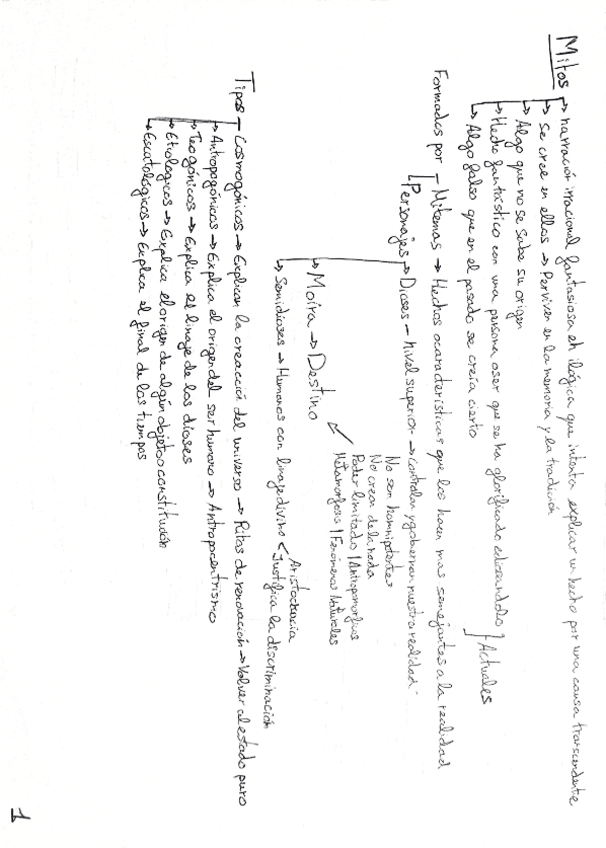 Mitos → narración irracional fantasiosa eh ilógica que intenta explicar un hecho por una causa transcendente
→ Se cree en ellos → Perviven en la memoria y la tradición
→ Algo que no se sabe su origen
→ Hecho fantástico con una persona o ser que se ha glorificado
→ Algo falso que en el pasado se creía cierto
Actuales
Formados por - Mitemas → Hechos o características que los hacen mas semejantes a la realidad
Personajes → Dioses - nivel superior → Controlan y gobiernan nuestra realidad.
No son homnipotentes
No crean de la nada
Poder limitado | Antropomorfios
Metamorfosis | Fenómenos Naturales
→ Moira → Destino
→ Semidioses → Humanos con linaje divino < Aristocracia
Justifica la discriminación
Tipos - Cosmogónicos → Explican la creacción del universo → Ritos de renovación → Volver al estado puro
→ Antropogónicos → Explica el origen del ser humano → Antropocentrismo
→ Teogónicos → Explica el linaje de los dioses
→ Etiológicos → Explica el origen de algún objeto o constitución
→ Escatológicos → Explica el final de los tiempos
1